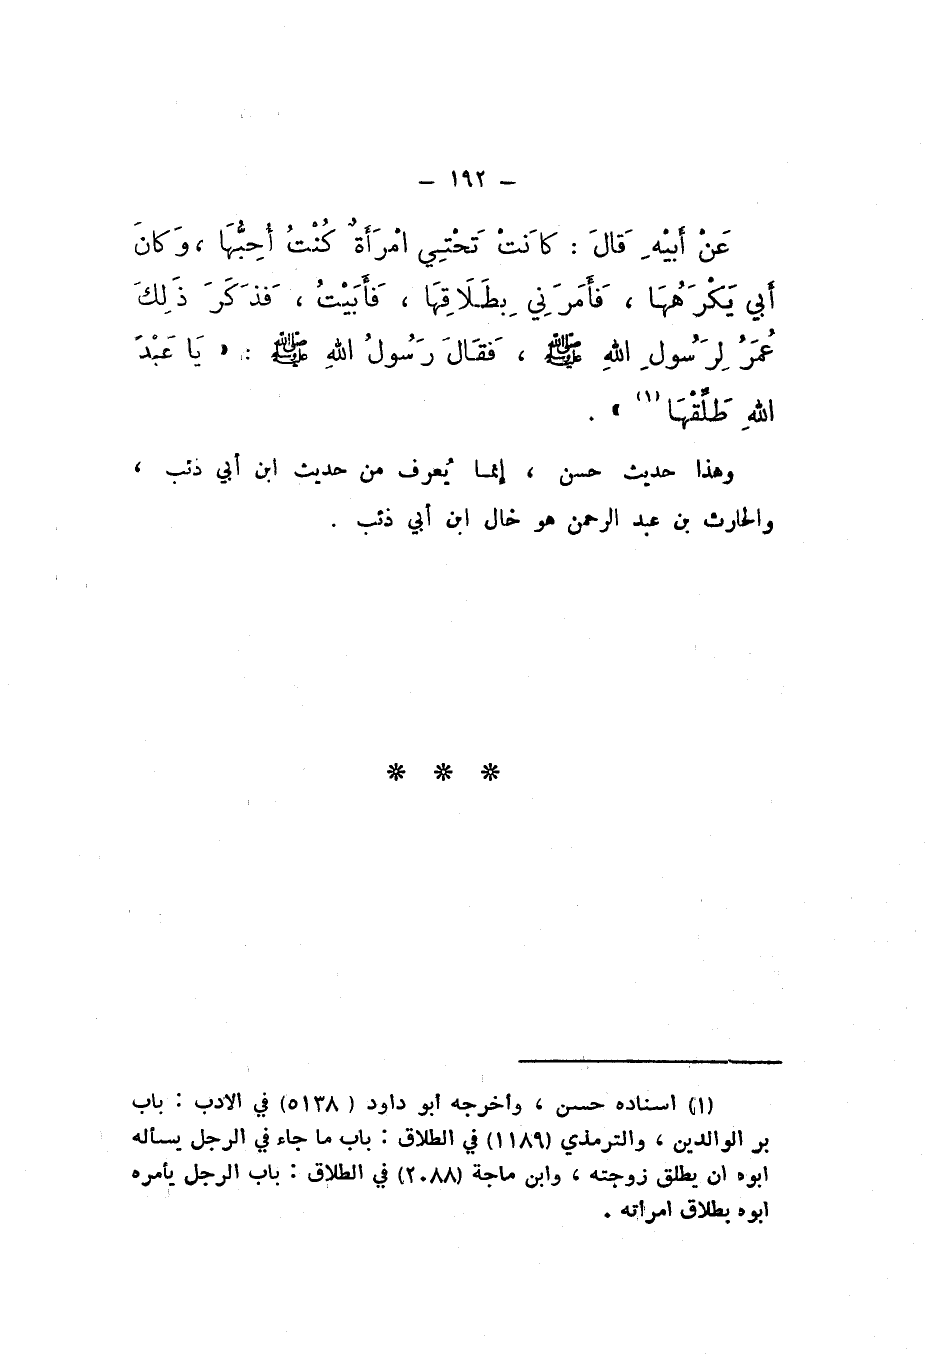 – ١٩٢ –
عَنْ أَبِيْهِ قَالَ : كَانَتْ تَحْتِي امْرَأَةٌ كُنْتُ أُحِبُّهَا ، وَكَانَ
أَبِي يَكْرَهُهَا ، فَأَمَرَنِي بِطَلَاقِهَا ، فَأَبَيْتُ ، فَذَكَرَ ذَلِكَ
عُمَرُ لِرَسُولِ اللهِ ﷺ ، فَقَالَ رَسُولُ اللهِ ﷺ : « يَا عَبْدَ
اللهِ طَلِّقْهَا (١) » .
وهذا حديث حسن ، إنما يُعرف من حديث ابن أبي ذئب ،
والحارث بن عبد الرحمن هو خال ابن أبي ذئب .
* * *
(١) اسناده حسن ، وأخرجه أبو داود ( ٥١٣٨) في الادب : باب
بر الوالدين ، والترمذي (١١٨٩) في الطلاق : باب ما جاء في الرجل يسأله
ابوه ان يطلق زوجته ، وابن ماجة (٢٠٨٨) في الطلاق : باب الرجل يأمره
ابوه بطلاق امرأته .